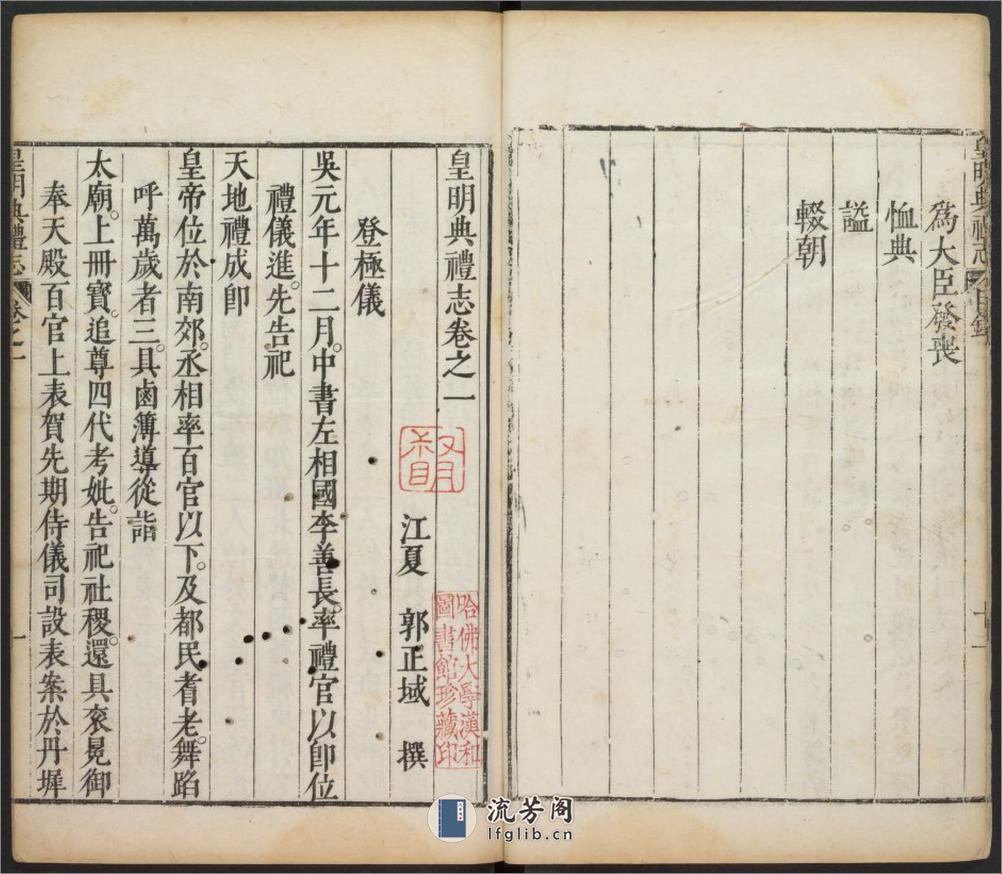 皇明典禮志 目錄
為大臣發喪
恤典
諡
輟朝
十一
皇明典禮志卷之一
江夏 郭正域 撰
登極儀
吳元年十二月中書左相國李善長率禮官以即位
禮儀進先告祀
天地禮成即
皇帝位於南郊丞相率百官以下及都民耆老舞蹈
呼萬歲者三具鹵簿導從詣
太廟上冊寶追尊四代考妣告祀社稷還具衮冕御
奉天殿百官上表賀先期侍儀司設表案於丹墀
皇明典禮志 卷之一
一
哈佛大學漢和
圖書館珍藏印
流芳阁
lfglib.cn